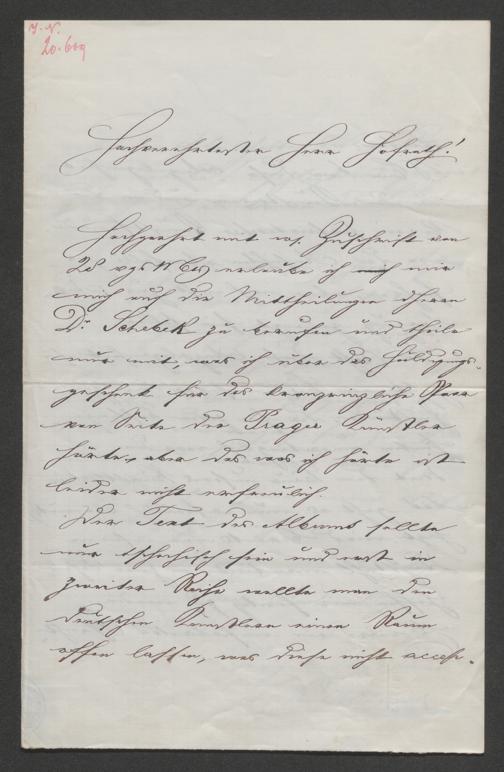 I. N.
20.609
Hochverehrtester Herr Hofrath!
Hochgeehrt mit w. Zuschrift von
28 vgs Mts erlaube ich mir
mich auf die Mittheilungen dHerrn
Dr Schebek zu berufen und theile
nur mit, was ich über das Huldigungs-
geschenk für das kronprinzliche Paar
von Seite der Prager Künstler
hörte, aber das was ich hörte ist
leider nicht erfreulich.
Der Text des Albums sollte
nur tschechisch sein und erst in
zweiter Reihe wollte man den
deutschen Künstlern einen Raum
offen lassen, was diese nicht accep-